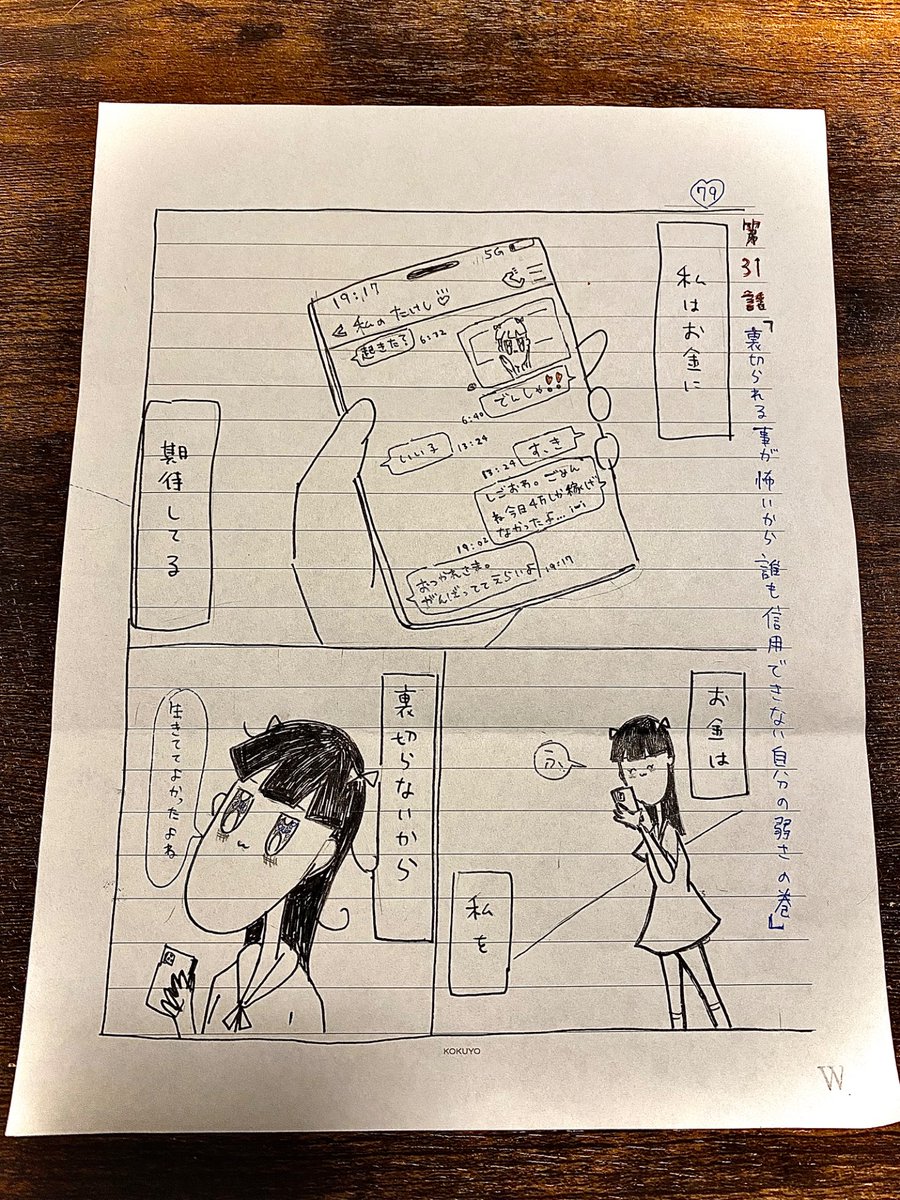 79
第31話「裏切られる事が怖いから誰も信用できない自分の弱さの巻」
私はお金に
19:17
5G
私のたけし
起きた?
6:32
でんしゃ!!
6:40
すき
13:24
いい子
13:24
しごおわ。ごめん
ね今日4万しか稼げ
なかったよ...
19:02
おつかれさま。
がんばっててえらいよ
19:17
期待してる
お金は
ふ、
私を
裏切らないから
生きててよかったよね
KOKUYO
W